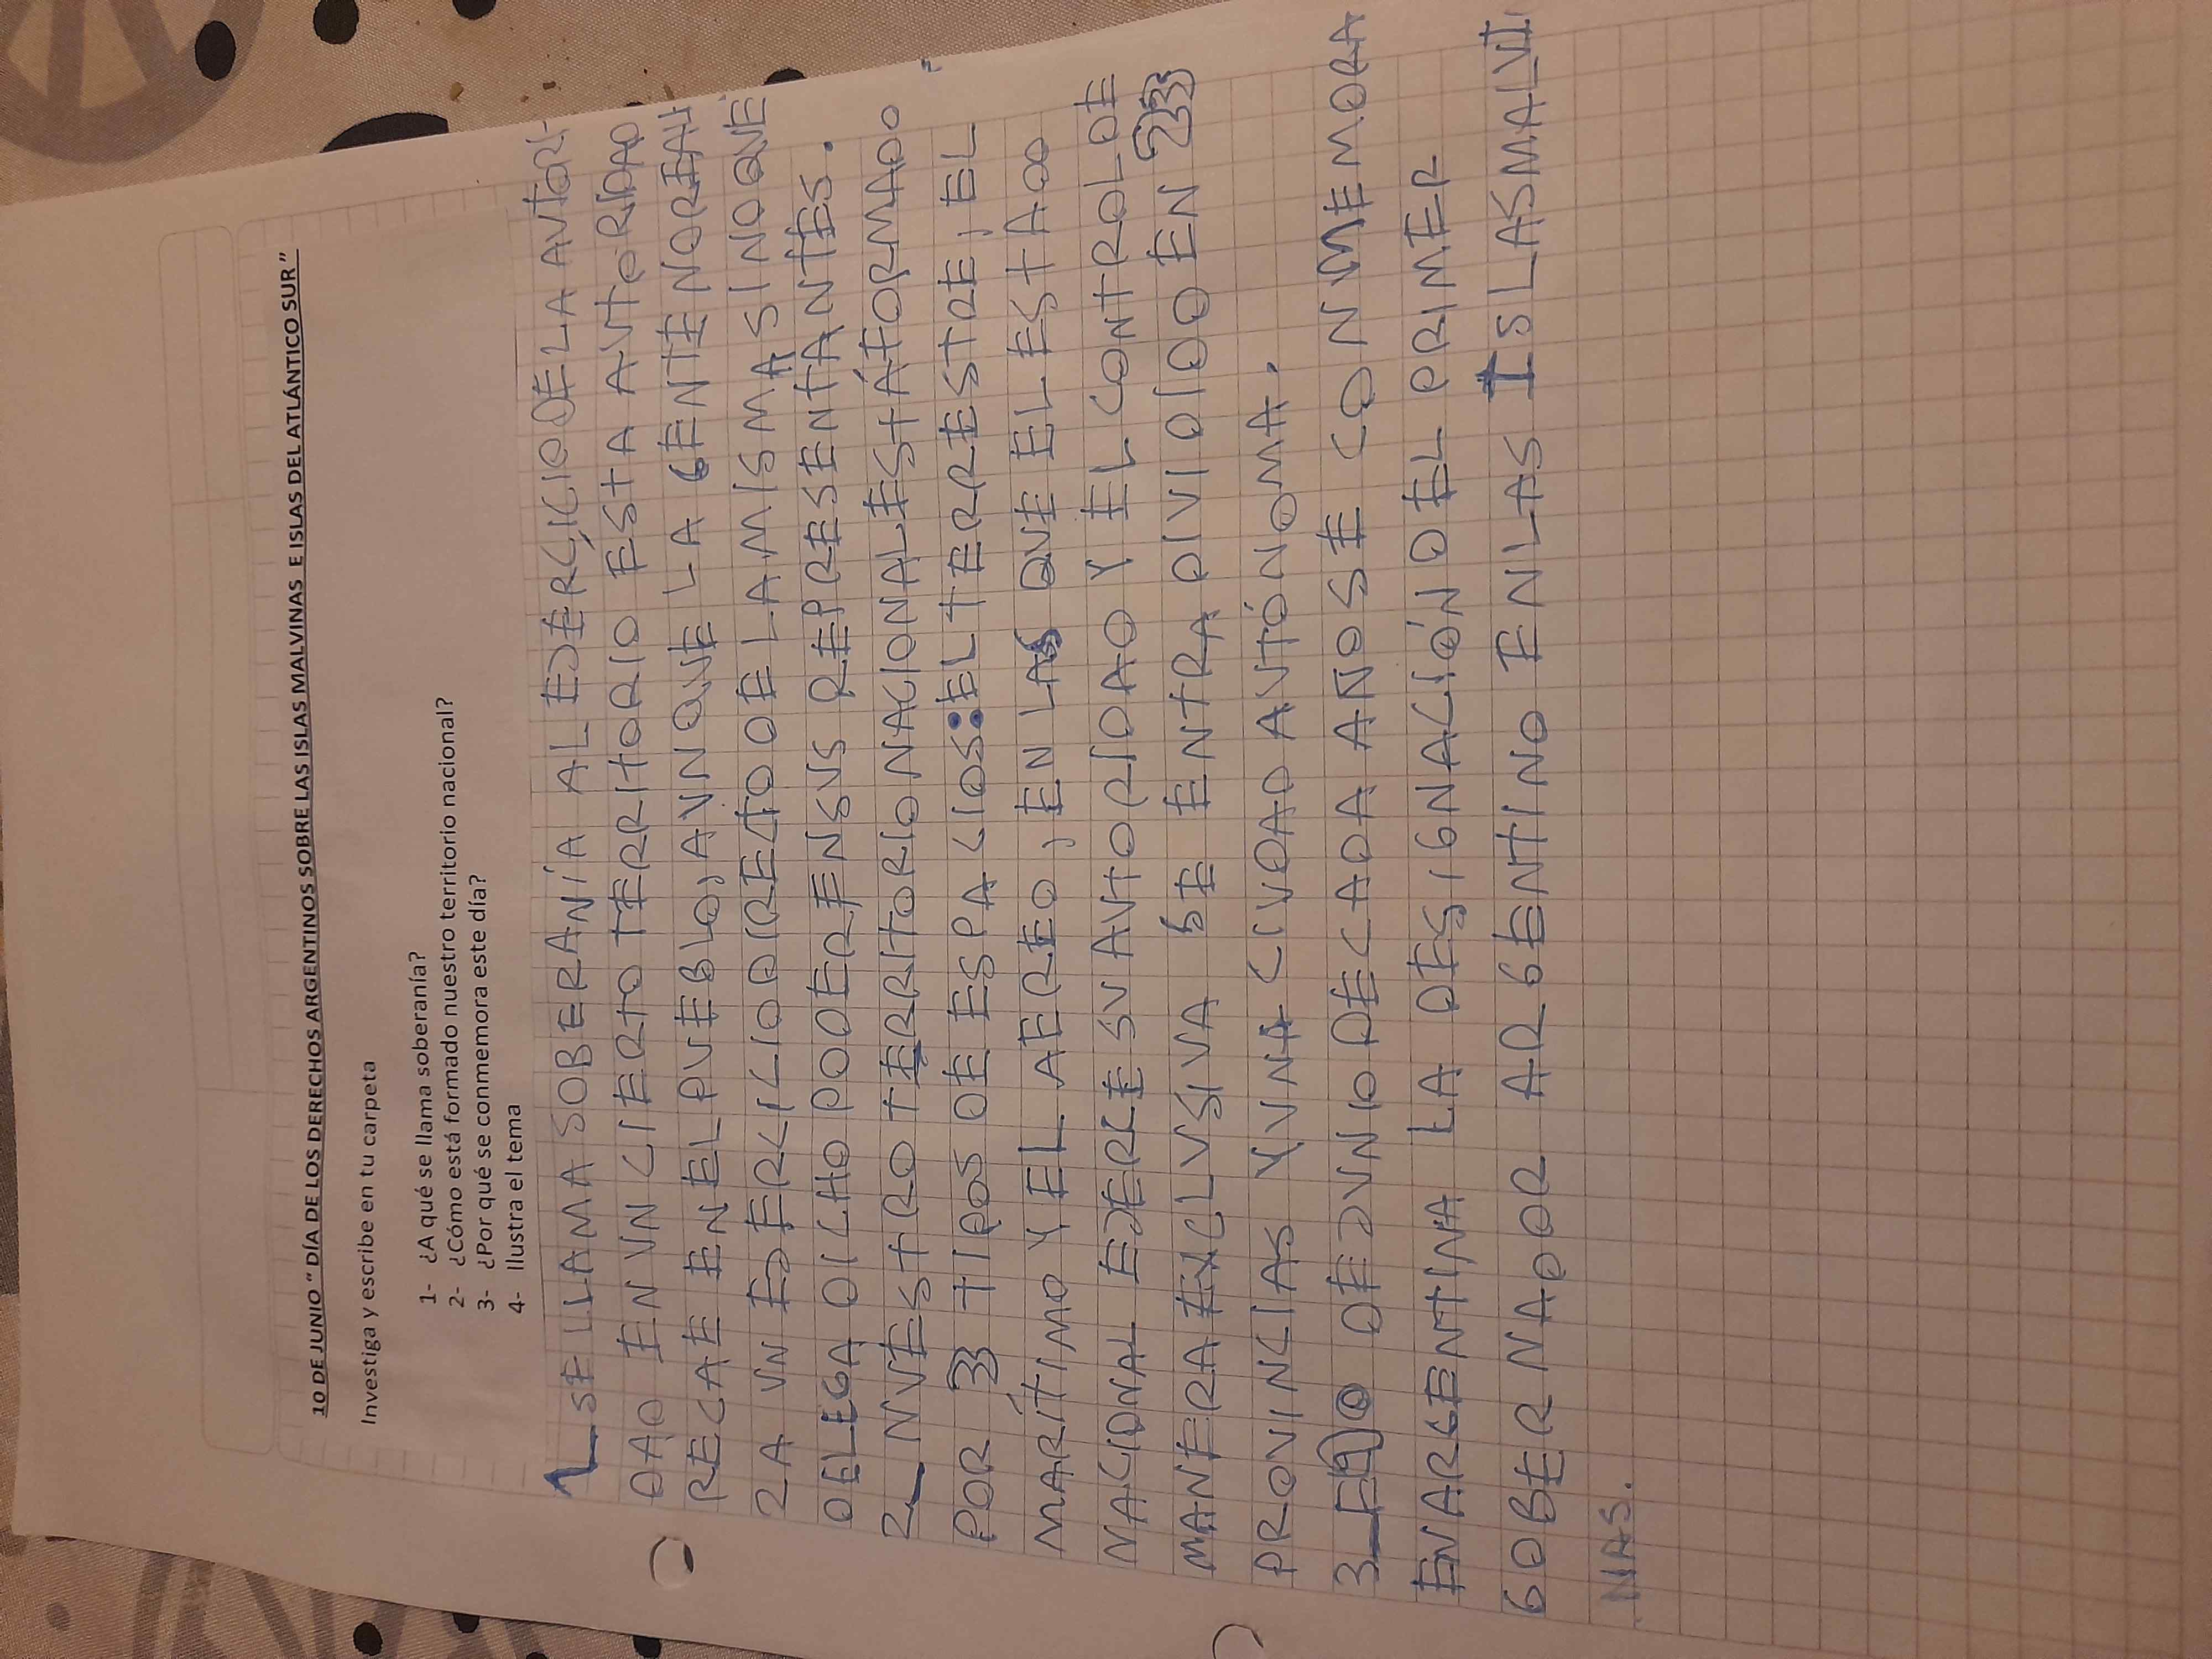 10 DE JUNIO "DÍA DE LOS DERECHOS ARGENTINOS SOBRE LAS ISLAS MALVINAS E ISLAS DEL ATLÁNTICO SUR"
Investiga y escribe en tu carpeta
1- ¿A qué se llama soberanía?
2- ¿Cómo está formado nuestro territorio nacional?
3- ¿Por qué se conmemora este día?
4- Ilustra el tema
1_ SE LLAMA SOBERANÍA AL EJERCICIO DE LA AUTORI-
DAD EN UN CIERTO TERRITORIO ESTA AUTORIDAD
RECAE EN EL PUEBLO, AUNQUE LA GENTE NO REALI
ZA UN EJERCICIO DIRECTO DE LA MISMA SINO QUE
DELEGA DICHO PODER EN SUS REPRESENTANTES.
2_ NUESTRO TERRITORIO NACIONAL ESTÁ FORMADO
POR 3 TIPOS DE ESPACIOS: EL TERRESTRE, EL
MARÍTIMO Y EL AEREO, EN LAS QUE EL ESTADO
NACIONAL EJERCE SU AUTORIDAD Y EL CONTROL DE
MANERA EXCLUSIVA SE ENTRA DIVIDIDO EN 23
PROVINCIAS Y UNA CIUDAD AUTÓNOMA.
3_ El 10 DE JUNIO DE CADA AÑO SE CONMEMORA
EN ARGENTINA LA DESIGNACIÓN DEL PRIMER
GOBERNADOR ARGENTINO EN LAS ISLAS MALVI
NAS.